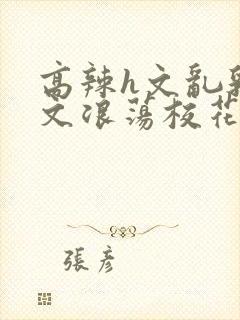 高辣h文乱乳
文浪荡校花
張彦